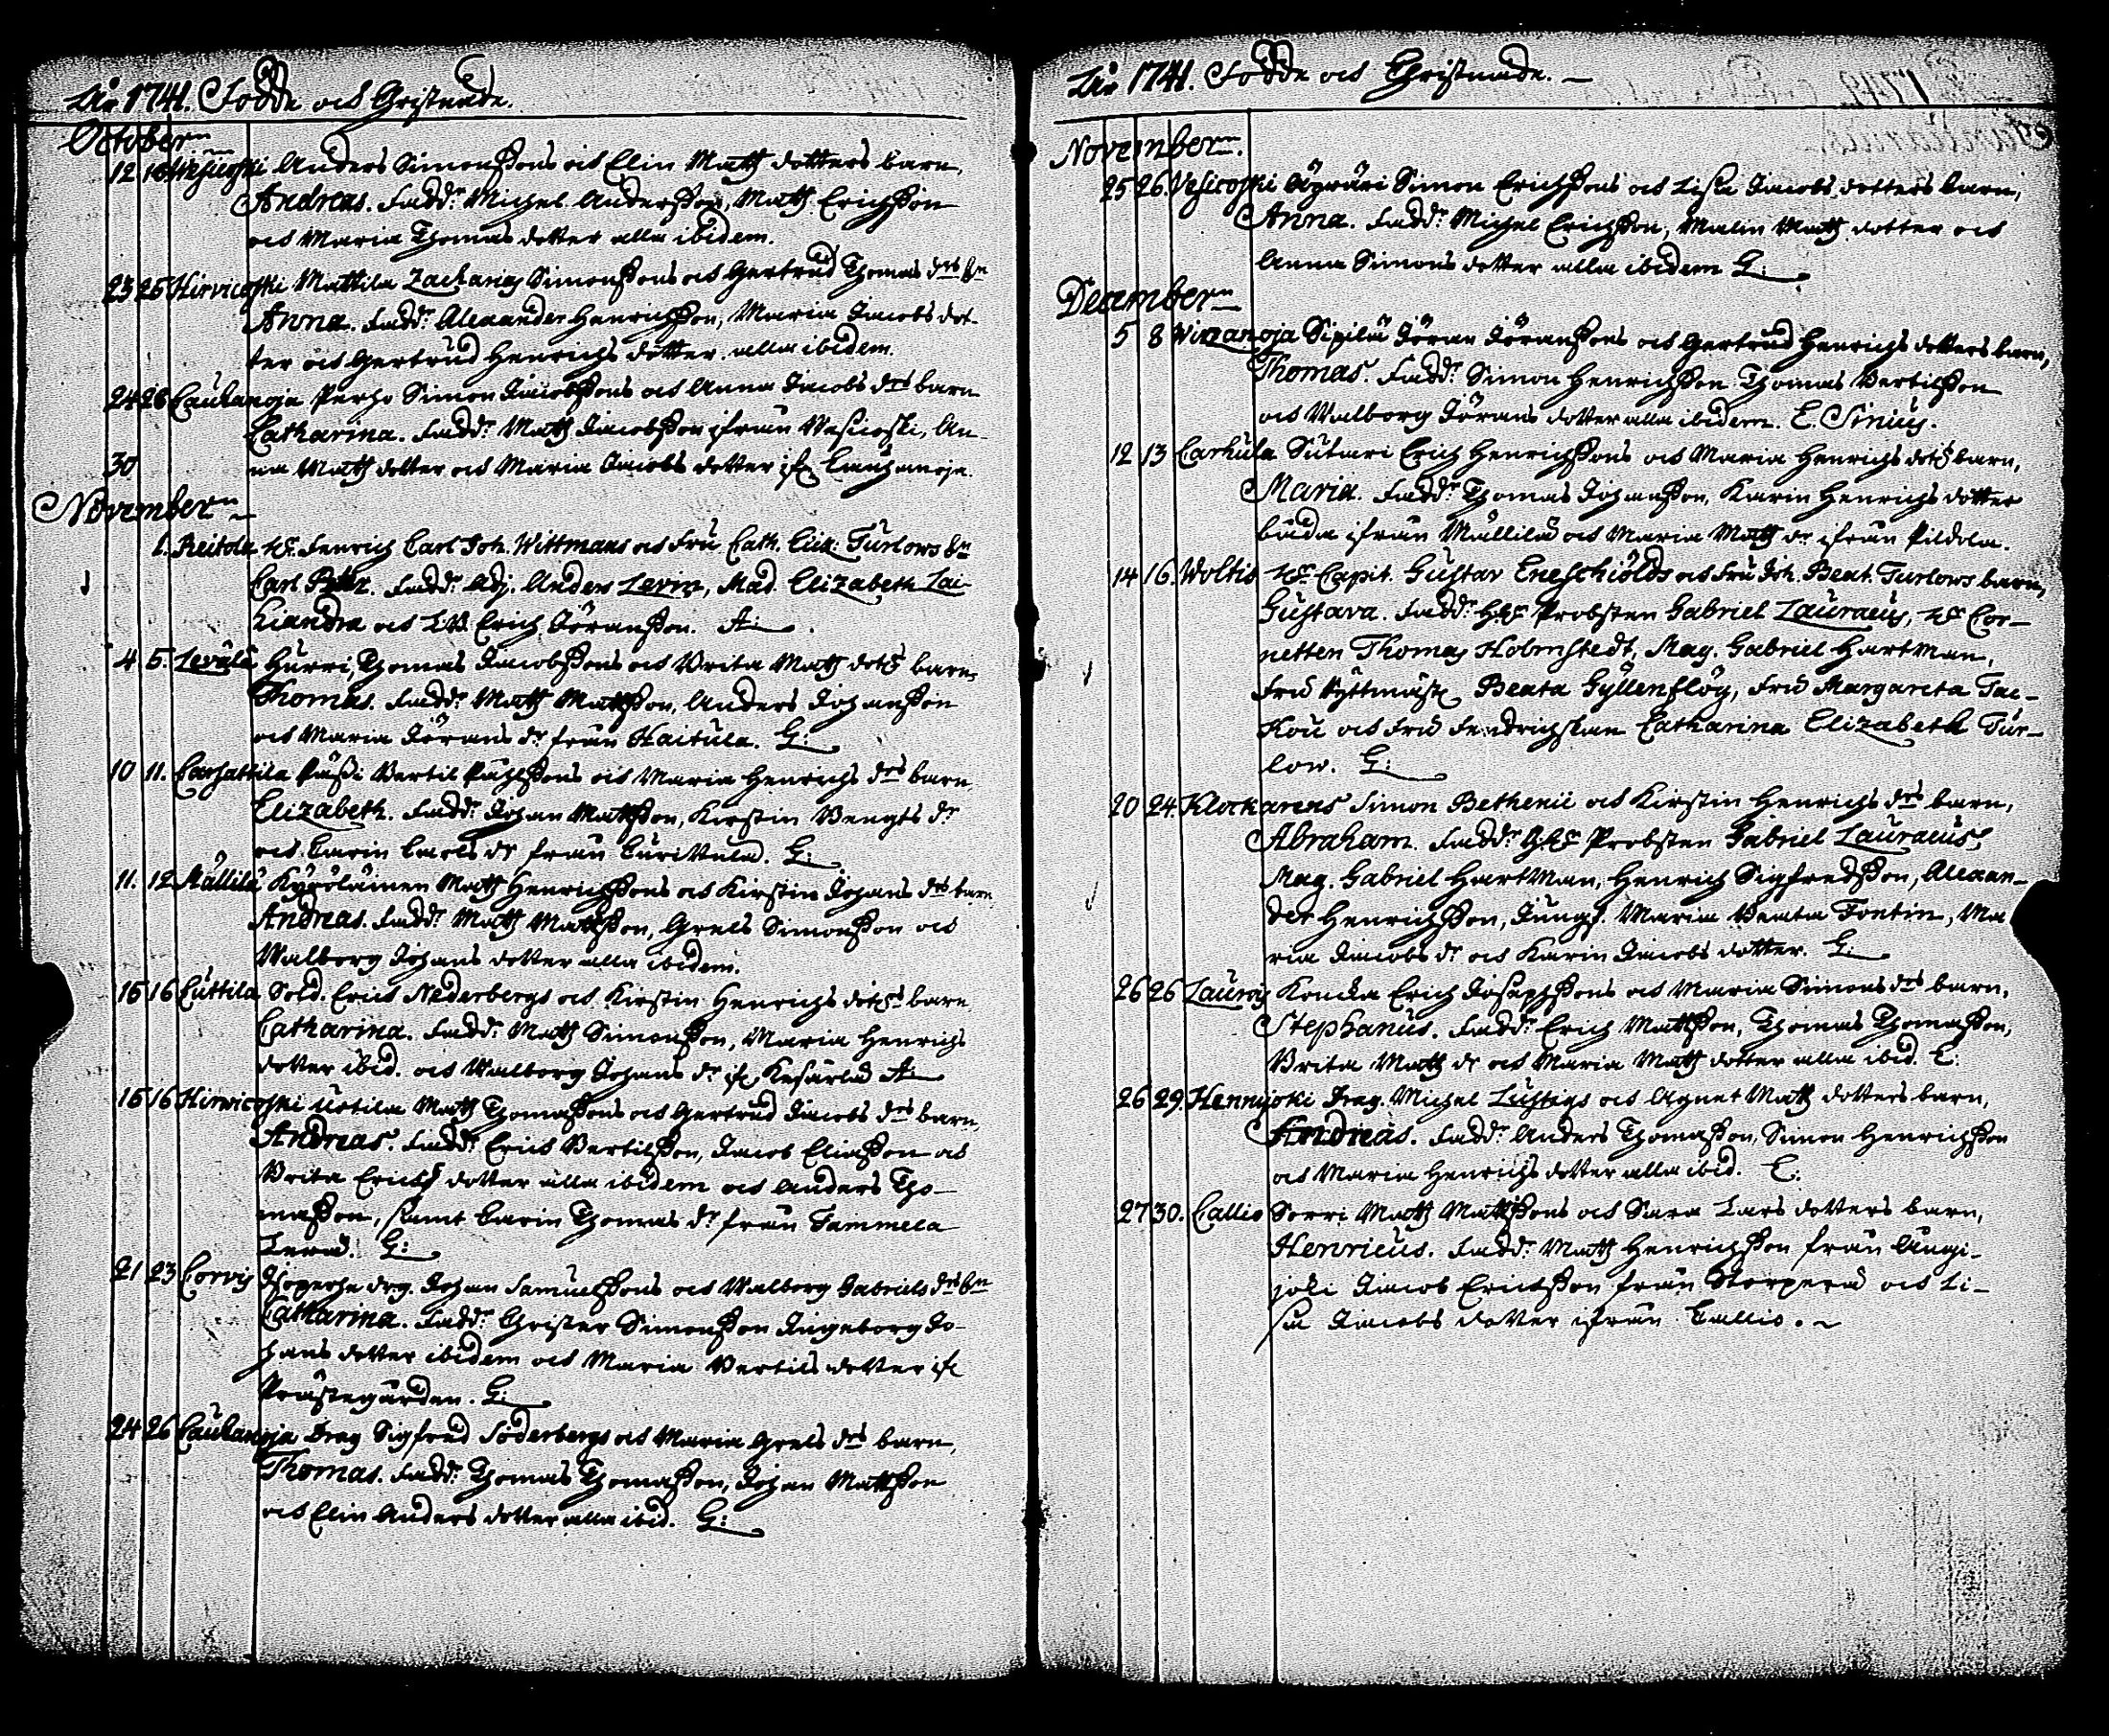 År 1741. Födde och Christnade.
October
12 18 Vesicoski Anders Simonssons och Elin Matts dotters barn,
Andreas. Fadd: Michel Andersson, Matts Erichsson
och Maria Thomas dotter alla ibidem.
23 25 Hirvicoski Mattila Zacharias Simonssons och Gertrud Thomas drs bn
Anna. Fadd: Alexander Henrichsson, Maria Jacobs dot-
ter och Gertrud Henrichs dotter alla ibidem.
24 28 Cauhanoja Perho Simon Jacobssons och Anna Jacobs drs barn
Catharina. Fadd: Matts Jacobsson ifrån Vesicoski, An-
30 na Matts dotter och Maria Jacobs dotter if: Cauhanoja.
November
1. Reitola Hr Fenrich Carl Joh. Wittmans och Fru Cath. Eliz: Turlows bn
Carl Petter. Fadd: Adj. Anders Levin, Mad. Elizabeth Lai-
kiandra och Erich Jöransson. A:
4 5. Levälä Hurri, Thomas Jacobssons och Brita Matts dotrs barn,
Thomas. Fadd: Matts Mattsson, Anders Johansson
och Maria Jörans dr från Haitula. G:
10 11. Carhattila Pässi Bertil Påhlssons och Maria Henrichs drs barn,
Elizabeth. Fadd: Johan Mattsson, Kirstin Bengts dr
och Carin Carls dr från Curittula. G:
11. 12 Mällilä Kyröläinen Matts Henrichssons och Kirstin Johans drs barn,
Andreas. Fadd: Matts Mattsson, Grels Simonsson och
Walborg Johans dotter alla ibidem.
15 16 Cuttila Sold. Erics Nederbergs och Kirstin Henrichs dotrs barn
Catharina. Fadd: Matts Simonsson, Maria Henrichs
dotter ibid. och Walborg Johans dr if: Kesärlä A:
15 16 Hirvicoski Uotila Matts Thomassons och Gertrud Jacobs drs barn,
Andreas. Fadd: Erics Bertilsson, Jacob Eliasson och
Brita Erichs dotter alla ibidem och Anders Tho-
masson, samt Carin Thomas dr från Tammela
Lerä. G:
21 23 Corvis drg. Johan Samuelssons och Walborg Gabriels drs bn
Catharina. Fadd: Christer Simonsson Ingeborg Jo-
hans dotter ibidem och Maria Bertils dotter if:
Prästegården. G:
24 26 Cauhanoja Drag Sigfred Söderbergs och Maria Grels drs barn,
Thomas. Fadd: Thomas Thomasson, Johan Mattsson
och Elin Anders dotter alla ibid. G:
År 1741. Födde och Christnade.
November.
25 26. Vesicoski Äyräri Simon Erichssons och Lisa Jacobs dotters barn,
Anna. Fadd: Michel Erichsson, Malin Matts dotter och
Anna Simons dotter alla ibidem G:
December
5 8 Virzanoja Sipilä Jöran Jöranssons och Gertrud Henrichs dotters barn,
Thomas. Fadd: Simon Henrichsson Thomas Bertilsson
och Walborg Jörans dotter alla ibidem. E. Sinius.
12 13 Carhula Sutari Erich Henrichssons och Maria Henrichs dotrs barn,
Maria. Fadd: Thomas Johansson, Karin Henrichs dotter
båda ifrån Mällilä och Maria Matts dr ifrån Pildola.
14 16. Woltis Hr Capit. Gustav Eneschiölds och Fru Joh. Beat. Turlows barn,
Gustava. Fadd: HHr Probsten Gabriel Lauraeus, Hr Cor-
netten Thomas Holmstedt, Mag. Gabriel Hartman,
Fru Ryttmäst: Beata Gyllenflög, Fru Margareta Tac-
kou och Fru Fendrichskan Catharina Elizabeth Tur-
low. G:
20 24. Klockarens Simon Bethenii och Kirstin Henrichs drs barn,
Abraham. Fadd: HHr Probsten Gabriel Lauraeus,
Mag. Gabriel Hartman, Henrich Sigfredsson, Alexan-
der Henrichsson, Jungf. Maria Beata Fontin, Ma
ria Jacobs dr och Karin Jacobs dotter. G:
26 26 Laurois Koncka Erich Josephssons och Maria Simons drs barn,
Stephanus. Fadd: Erich Mattsson, Thomas Thomasson,
Brita Matts dr och Maria Matts dotter alla ibid. E:
26 29. Hennijoki Drag. Michel Lustigs och Agnet Matts dotters barn,
Andreas. Fadd: Anders Thomasson, Simon Henrichsson
och Maria Henrichs dotter alla ibid. E:
27 30. Callio Sorri Matts Mattssons och Sara Lars dotters barn,
Henricus. Fadd: Matts Henrichsson från Augi-
joki Jacob Ericksson från Storperä och Li-
sa Jacobs dotter ifrån Callio.